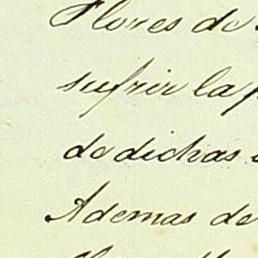 Flores de
sufrir la
de dichas
Ademas de